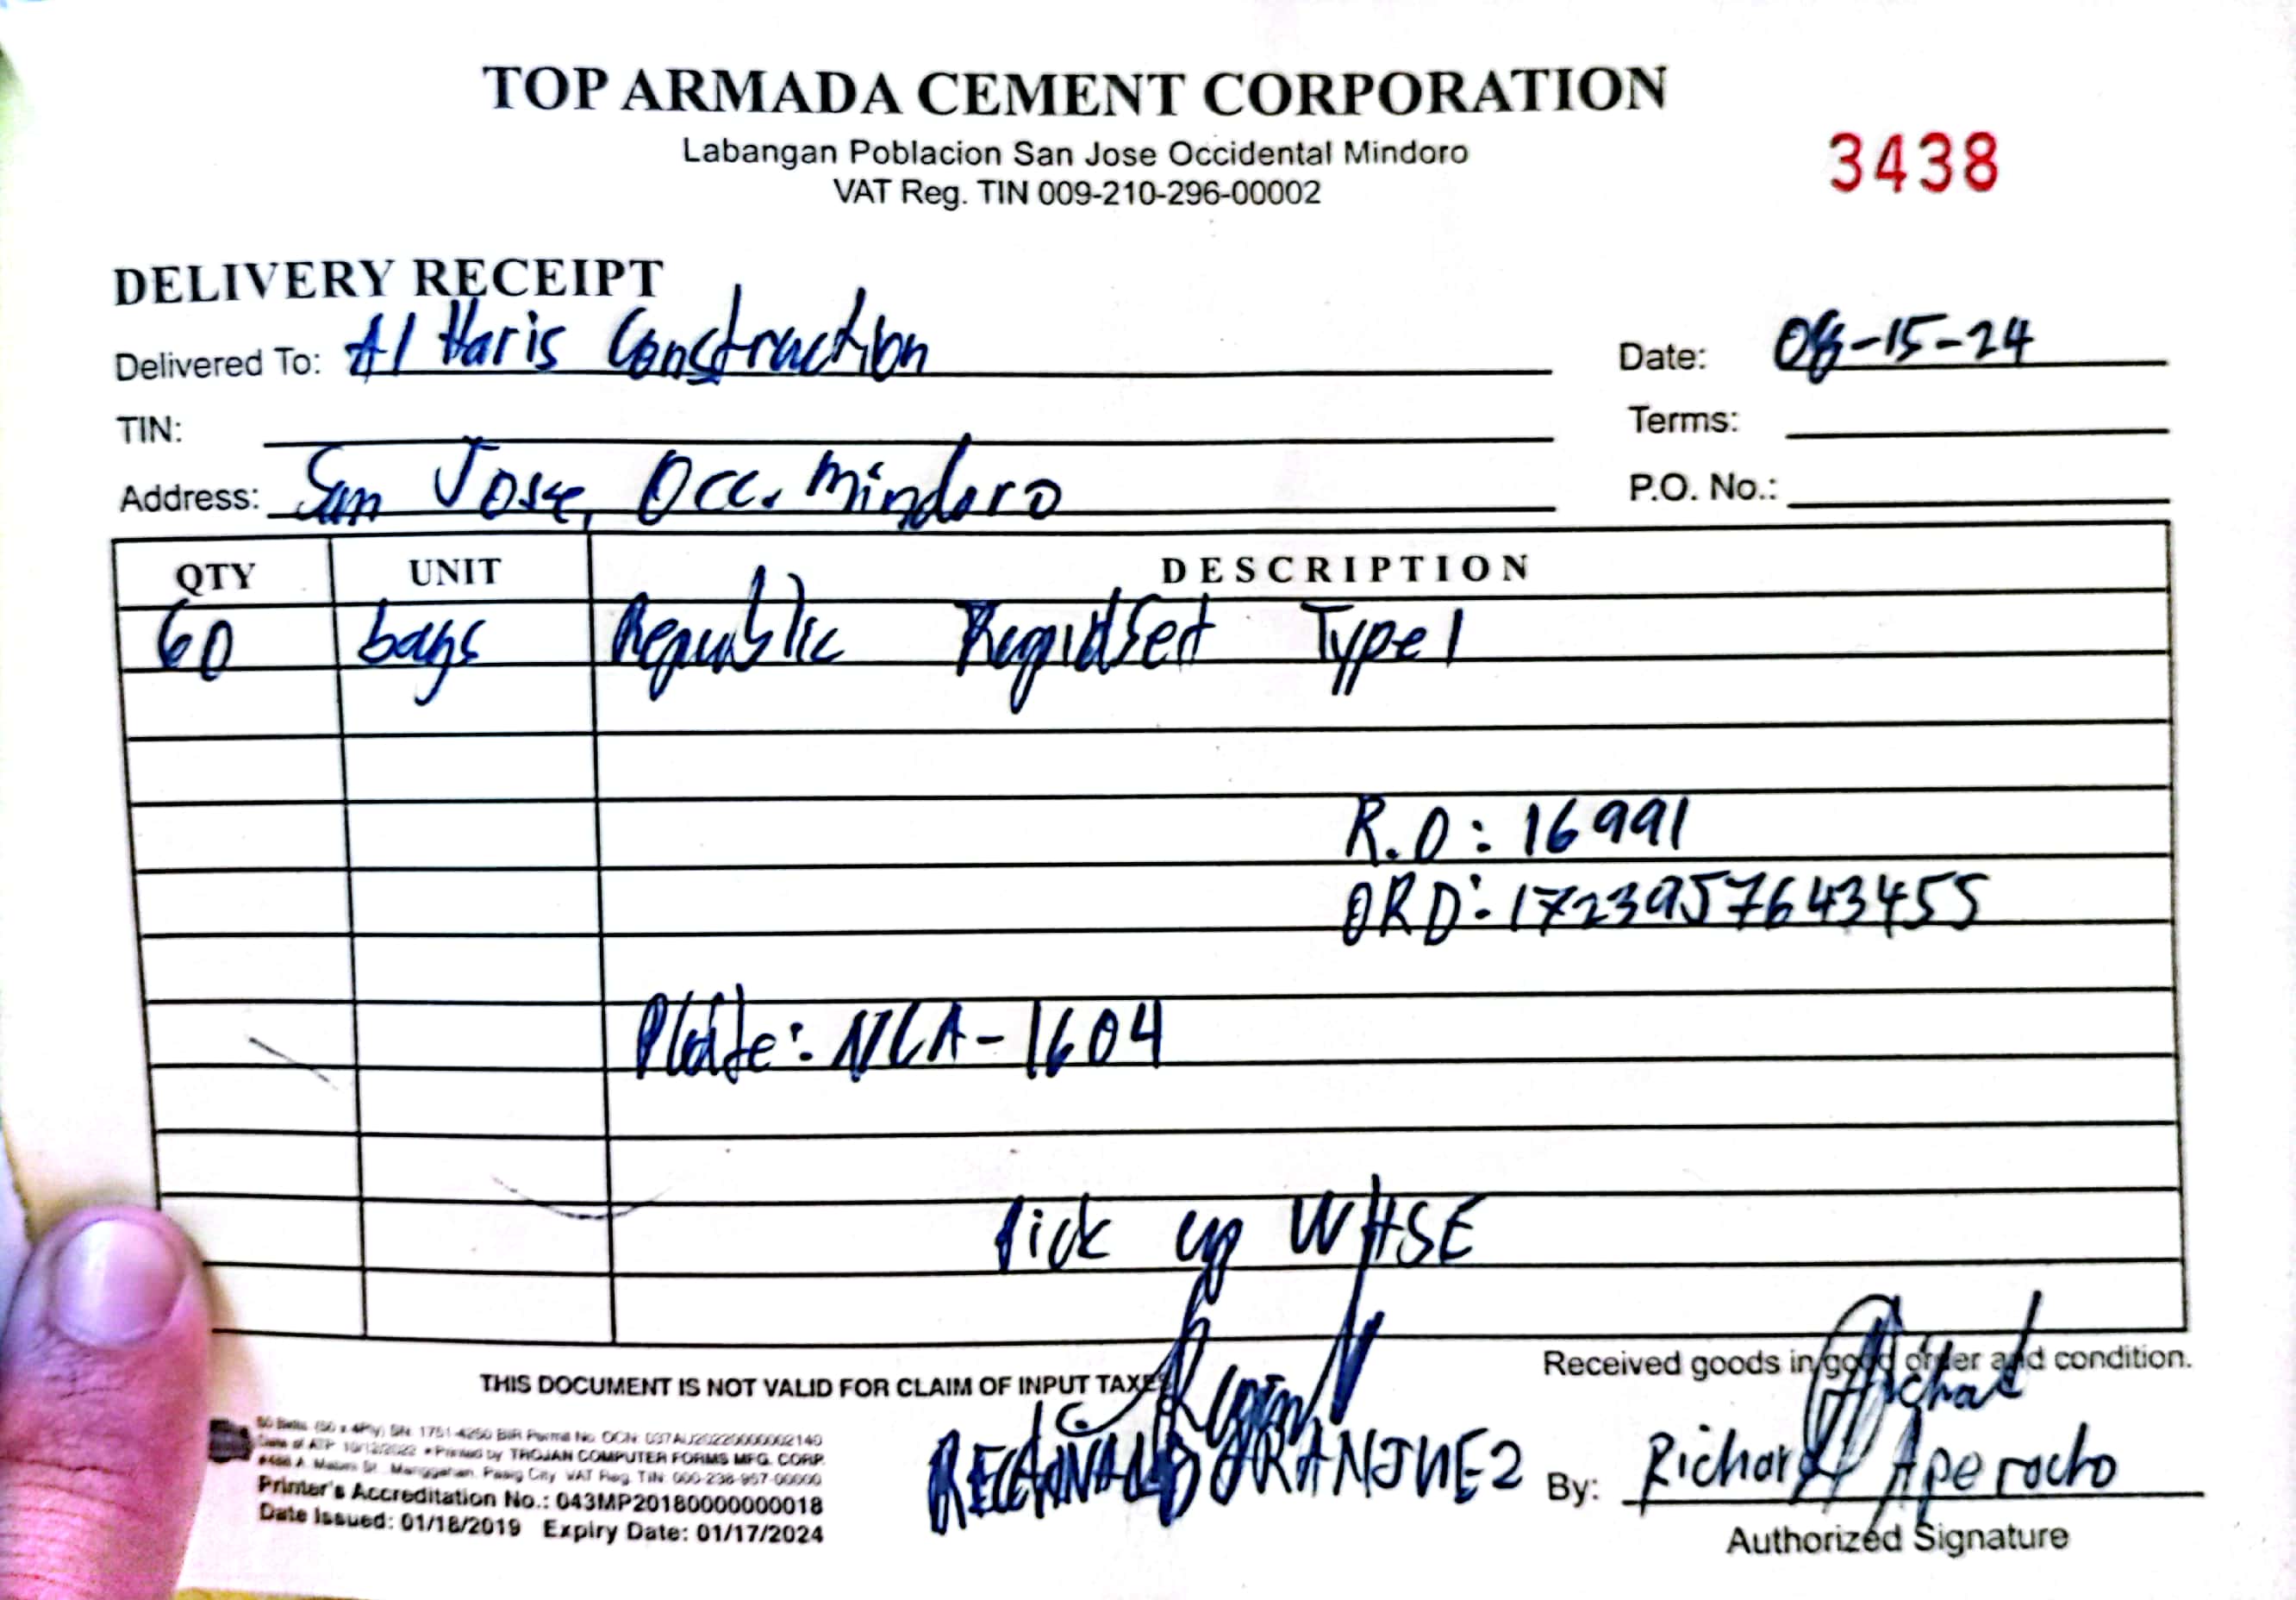 TOP ARMADA CEMENT CORPORATION
Labangan Poblacion San Jose Occidental Mindoro
3438
VAT Reg. TIN 009-210-296-00002
DELIVERY RECEIPT
Delivered To: Al Haris Construction Date: 08-15-24
TIN: Terms:
Address: San Jose, Occ. Mindoro P.O. No.:
QTY UNIT DESCRIPTION
60 bags Republic RapidSet Type 1
R.O: 16991
ORD: 1723957643455
Plate: NCA-1604
Pick up WHSE
Received goods in good order and condition.
THIS DOCUMENT IS NOT VALID FOR CLAIM OF INPUT TAXES
50 Bklts. (50 x 4Ply) SN: 1751-4250 BIR Permit No. OCN: 037AU20220000002140
Date of ATP 10/12/2022 Printed by TROJAN COMPUTER FORMS MFG. CORP.
A. Mabini St., Manggahan, Pasig City VAT Reg. TIN: 000-238-957-00000
Printer's Accreditation No.: 043MP20180000000018
Date Issued: 01/18/2019 Expiry Date: 01/17/2024
By: Richard Aperocho
Authorized Signature